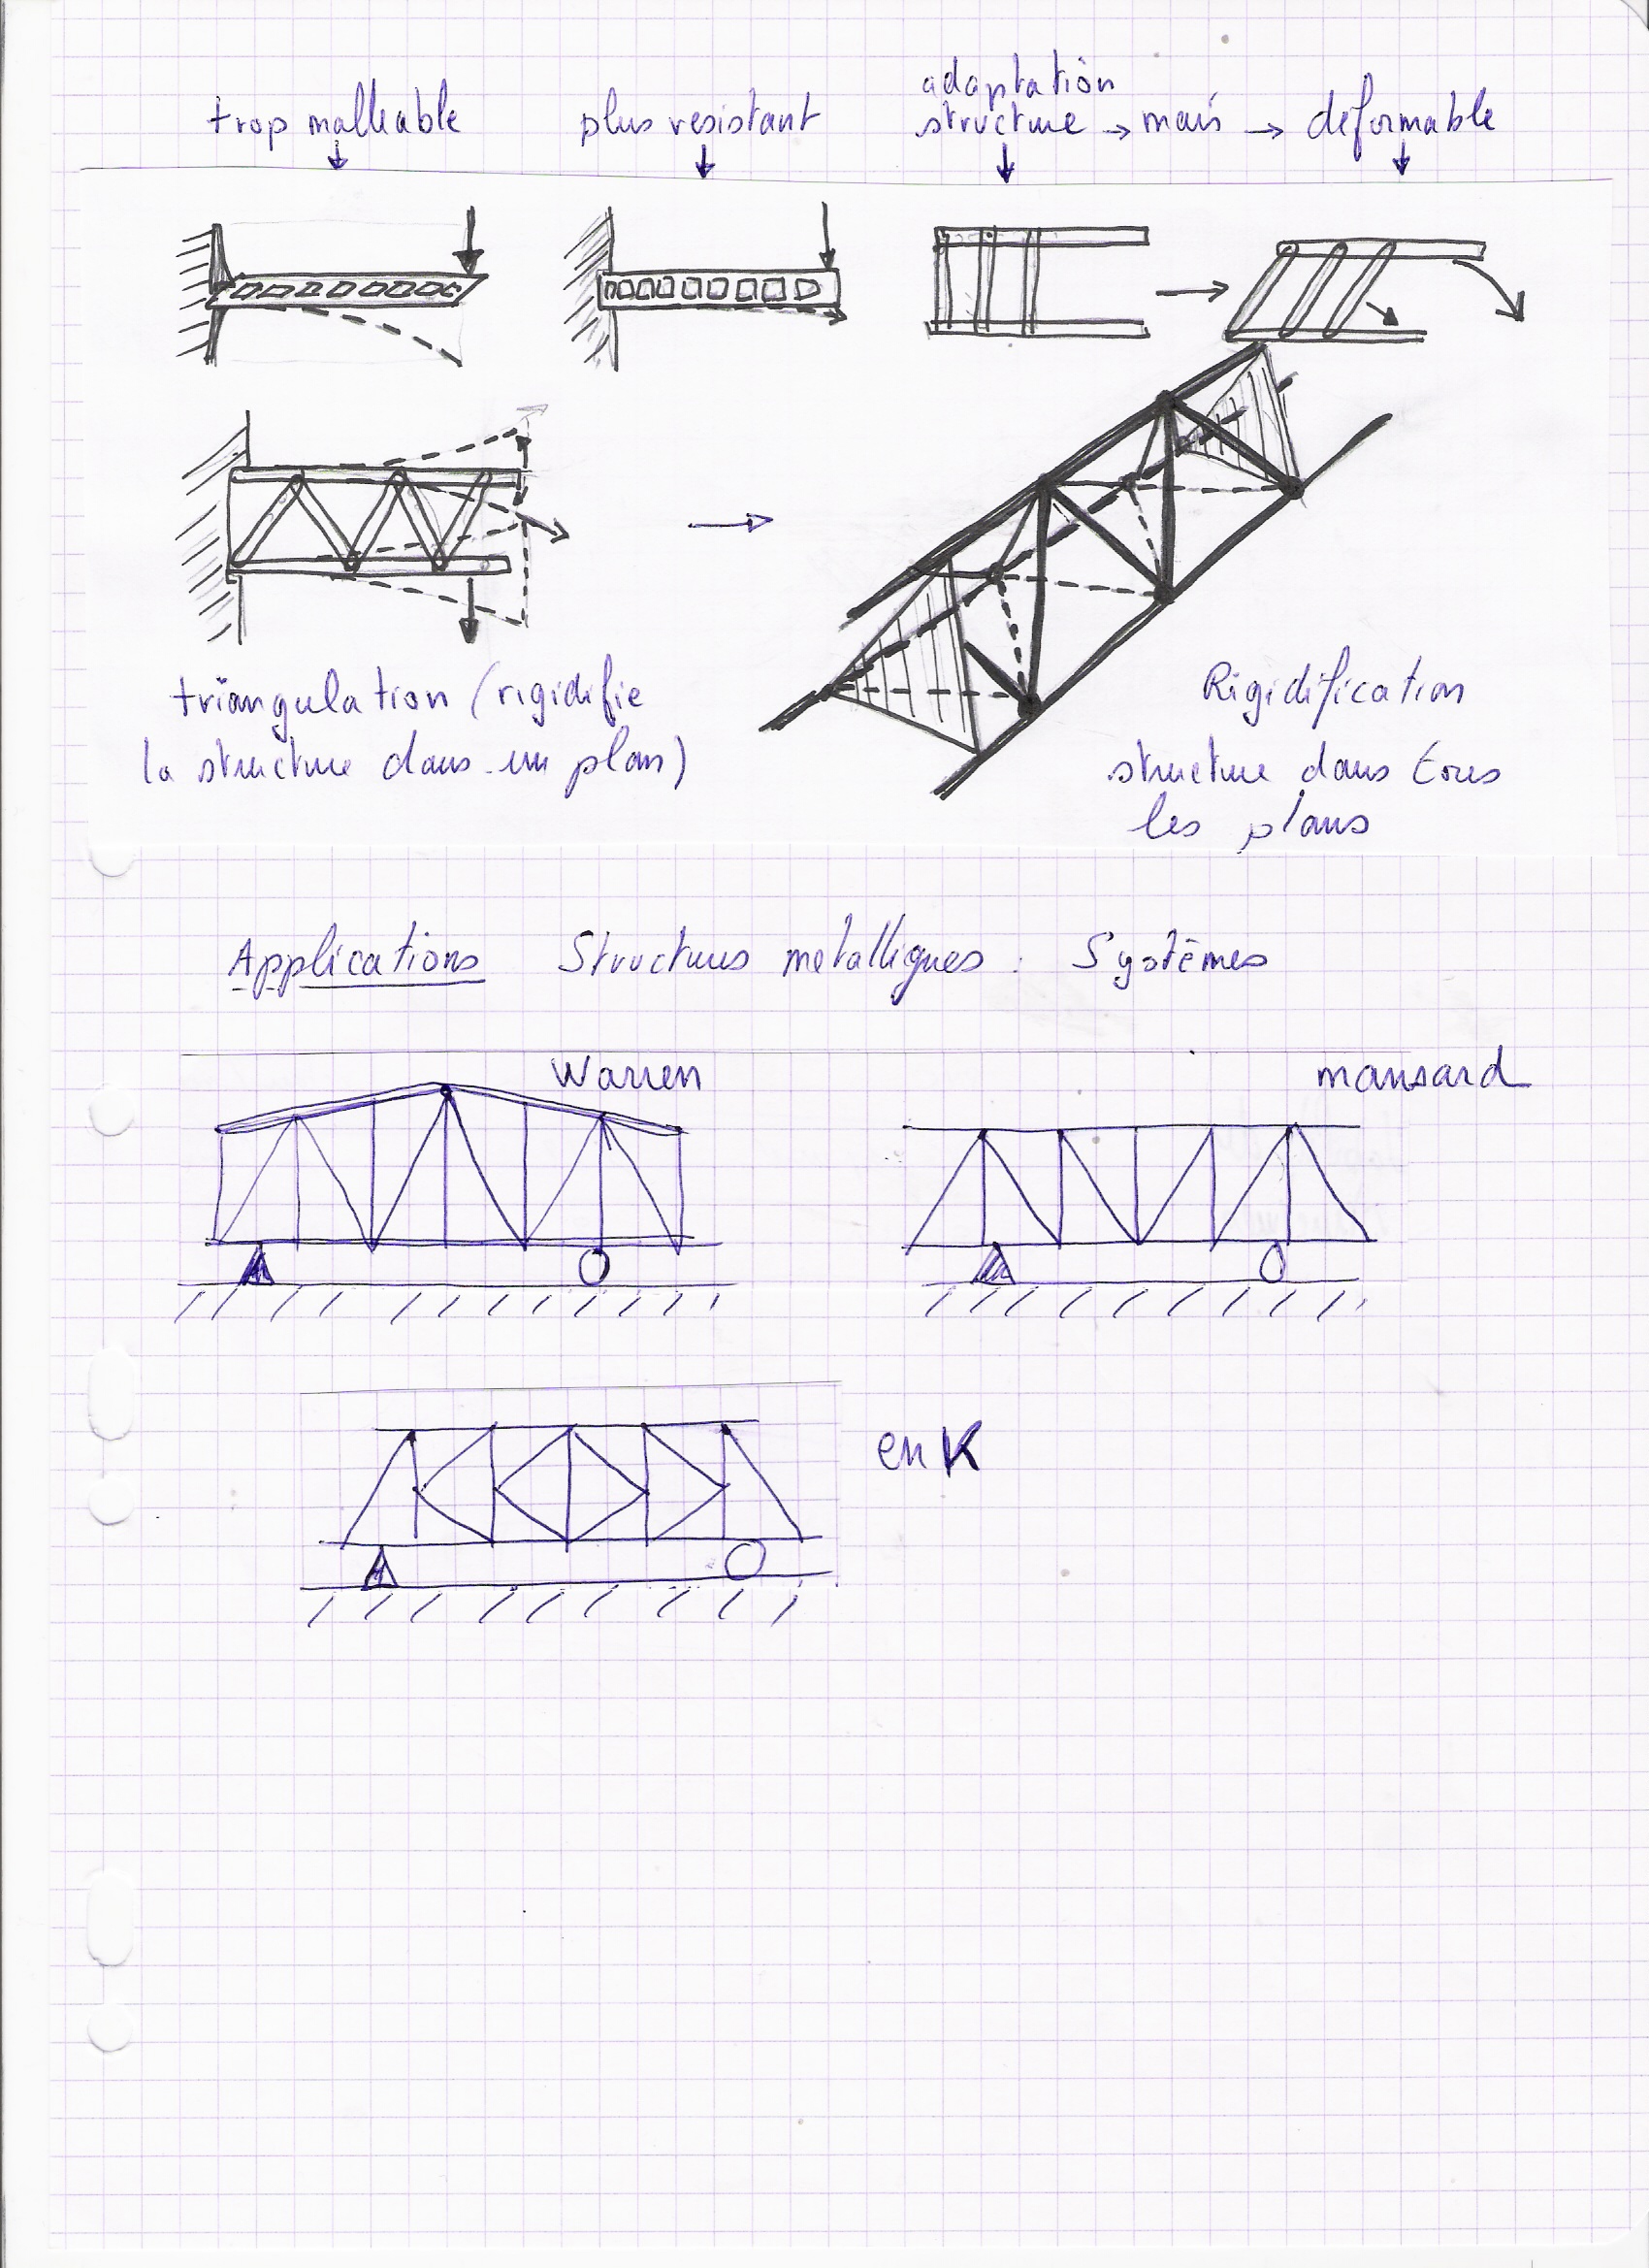 trop malleable
plus resistant
adaptation
structure → mais → deformable
triangulation (rigidifie
la structure dans un plan)
Rigidification
structure dans tous
les plans
Applications Structures metalliques : Systèmes
Warren
mansard
en K